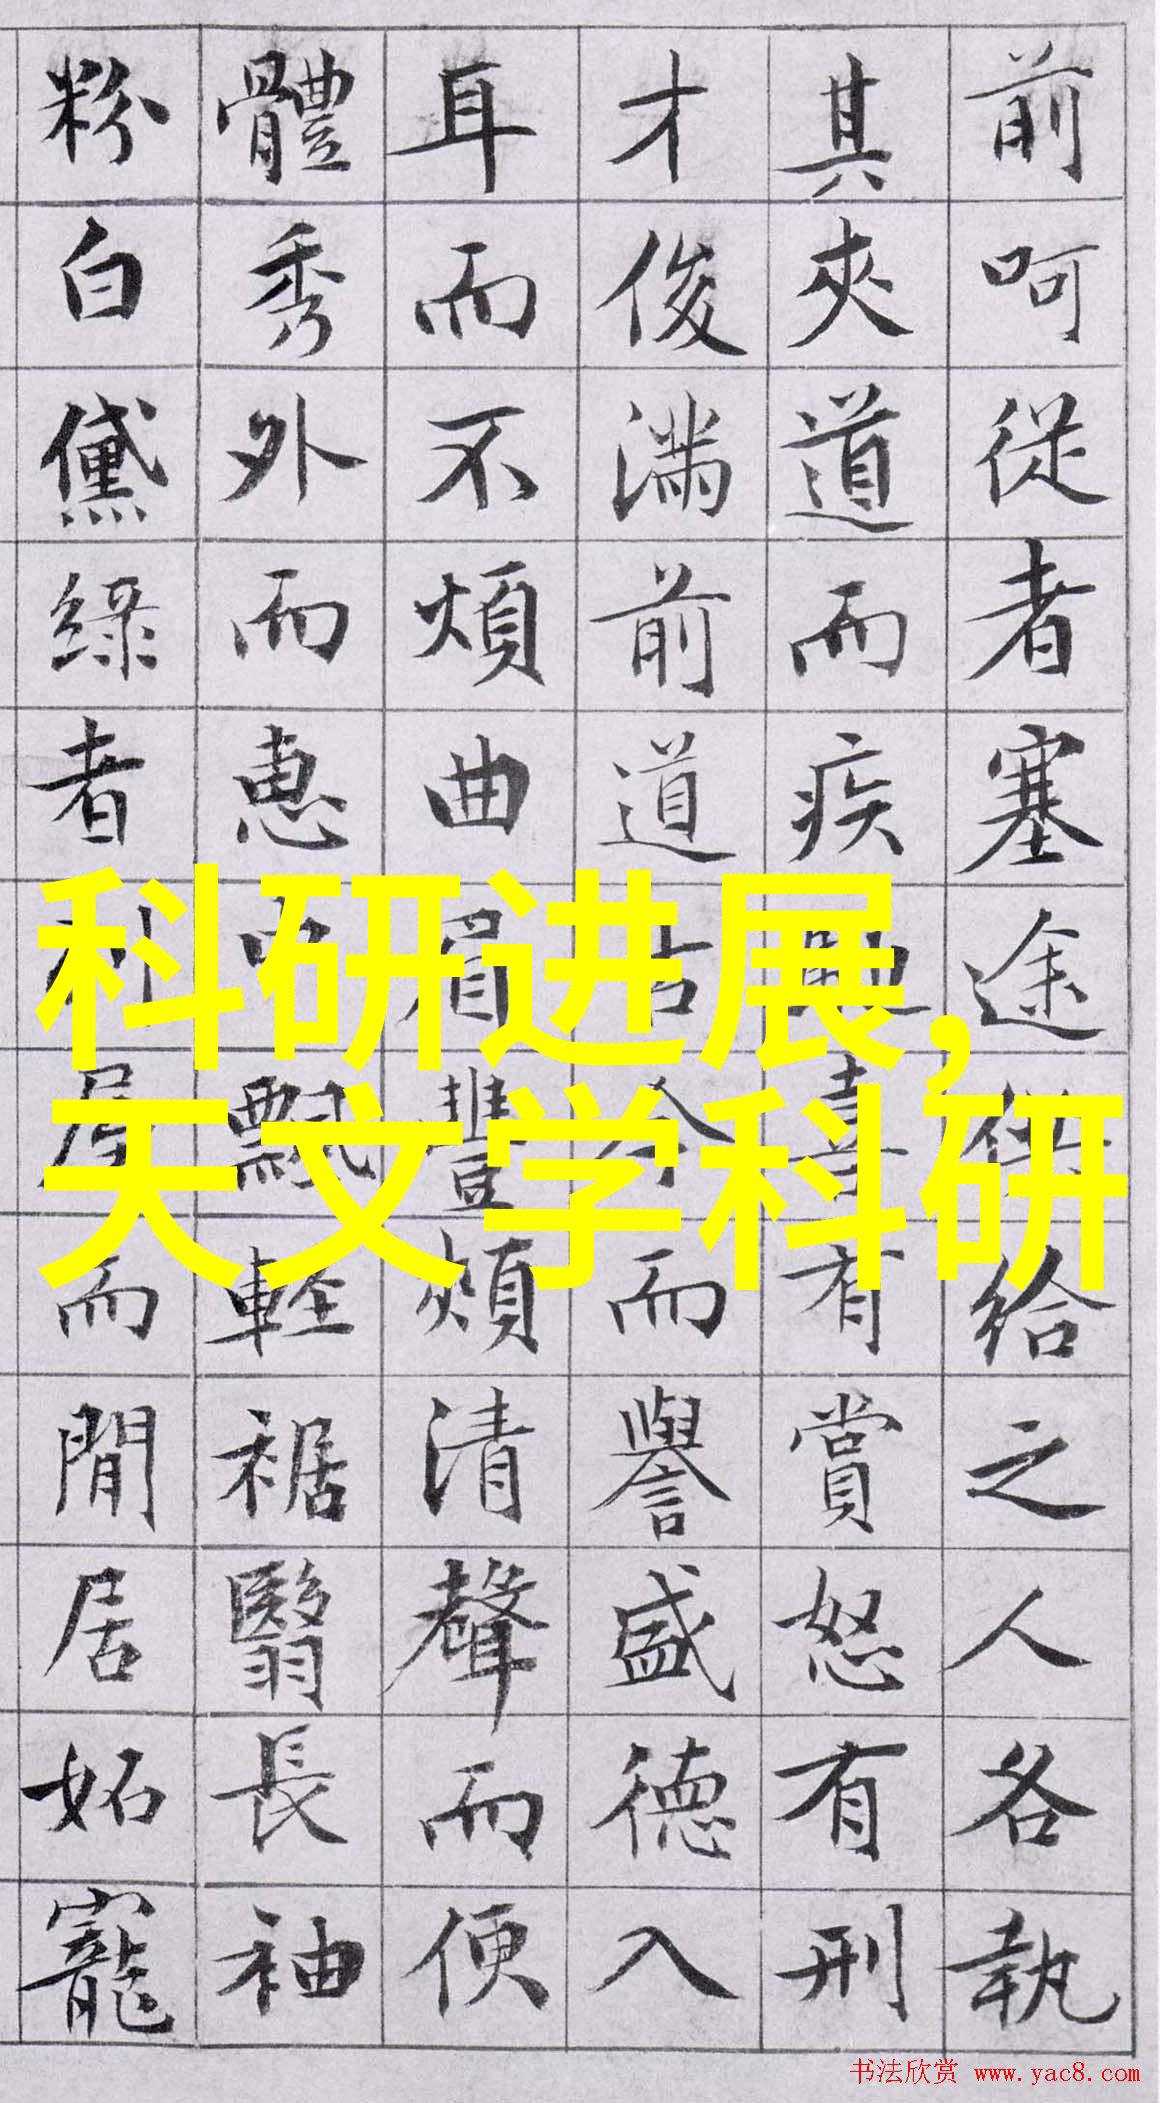 前呵從者塞途供給之人各執
其夾道而疾馳喜有賞怒有刑
才俊滿前道古今而譽盛德入
耳而不煩曲眉豐頰清聲而便
體秀外而惠中飄輕裾翳長袖
粉白黛綠者列屋而閒居妬寵
科研进展,
天文学科研
书法欣赏 www.yac8.com